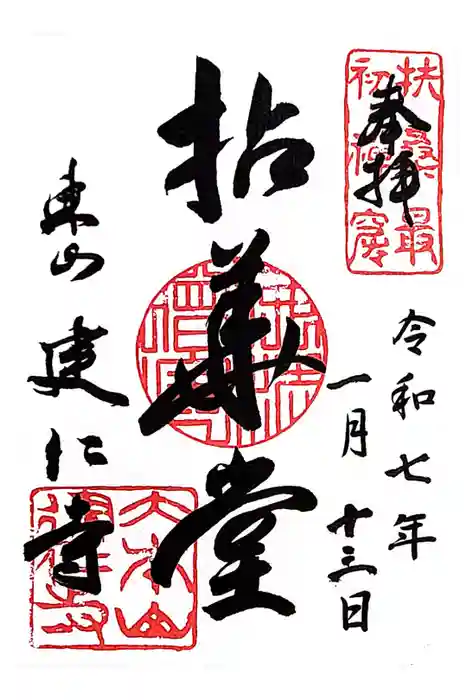 奉拝
扶桑最
初禅窟
令和七年
一月十三日
拈華堂
東山
建仁寺
大本山
建仁寺